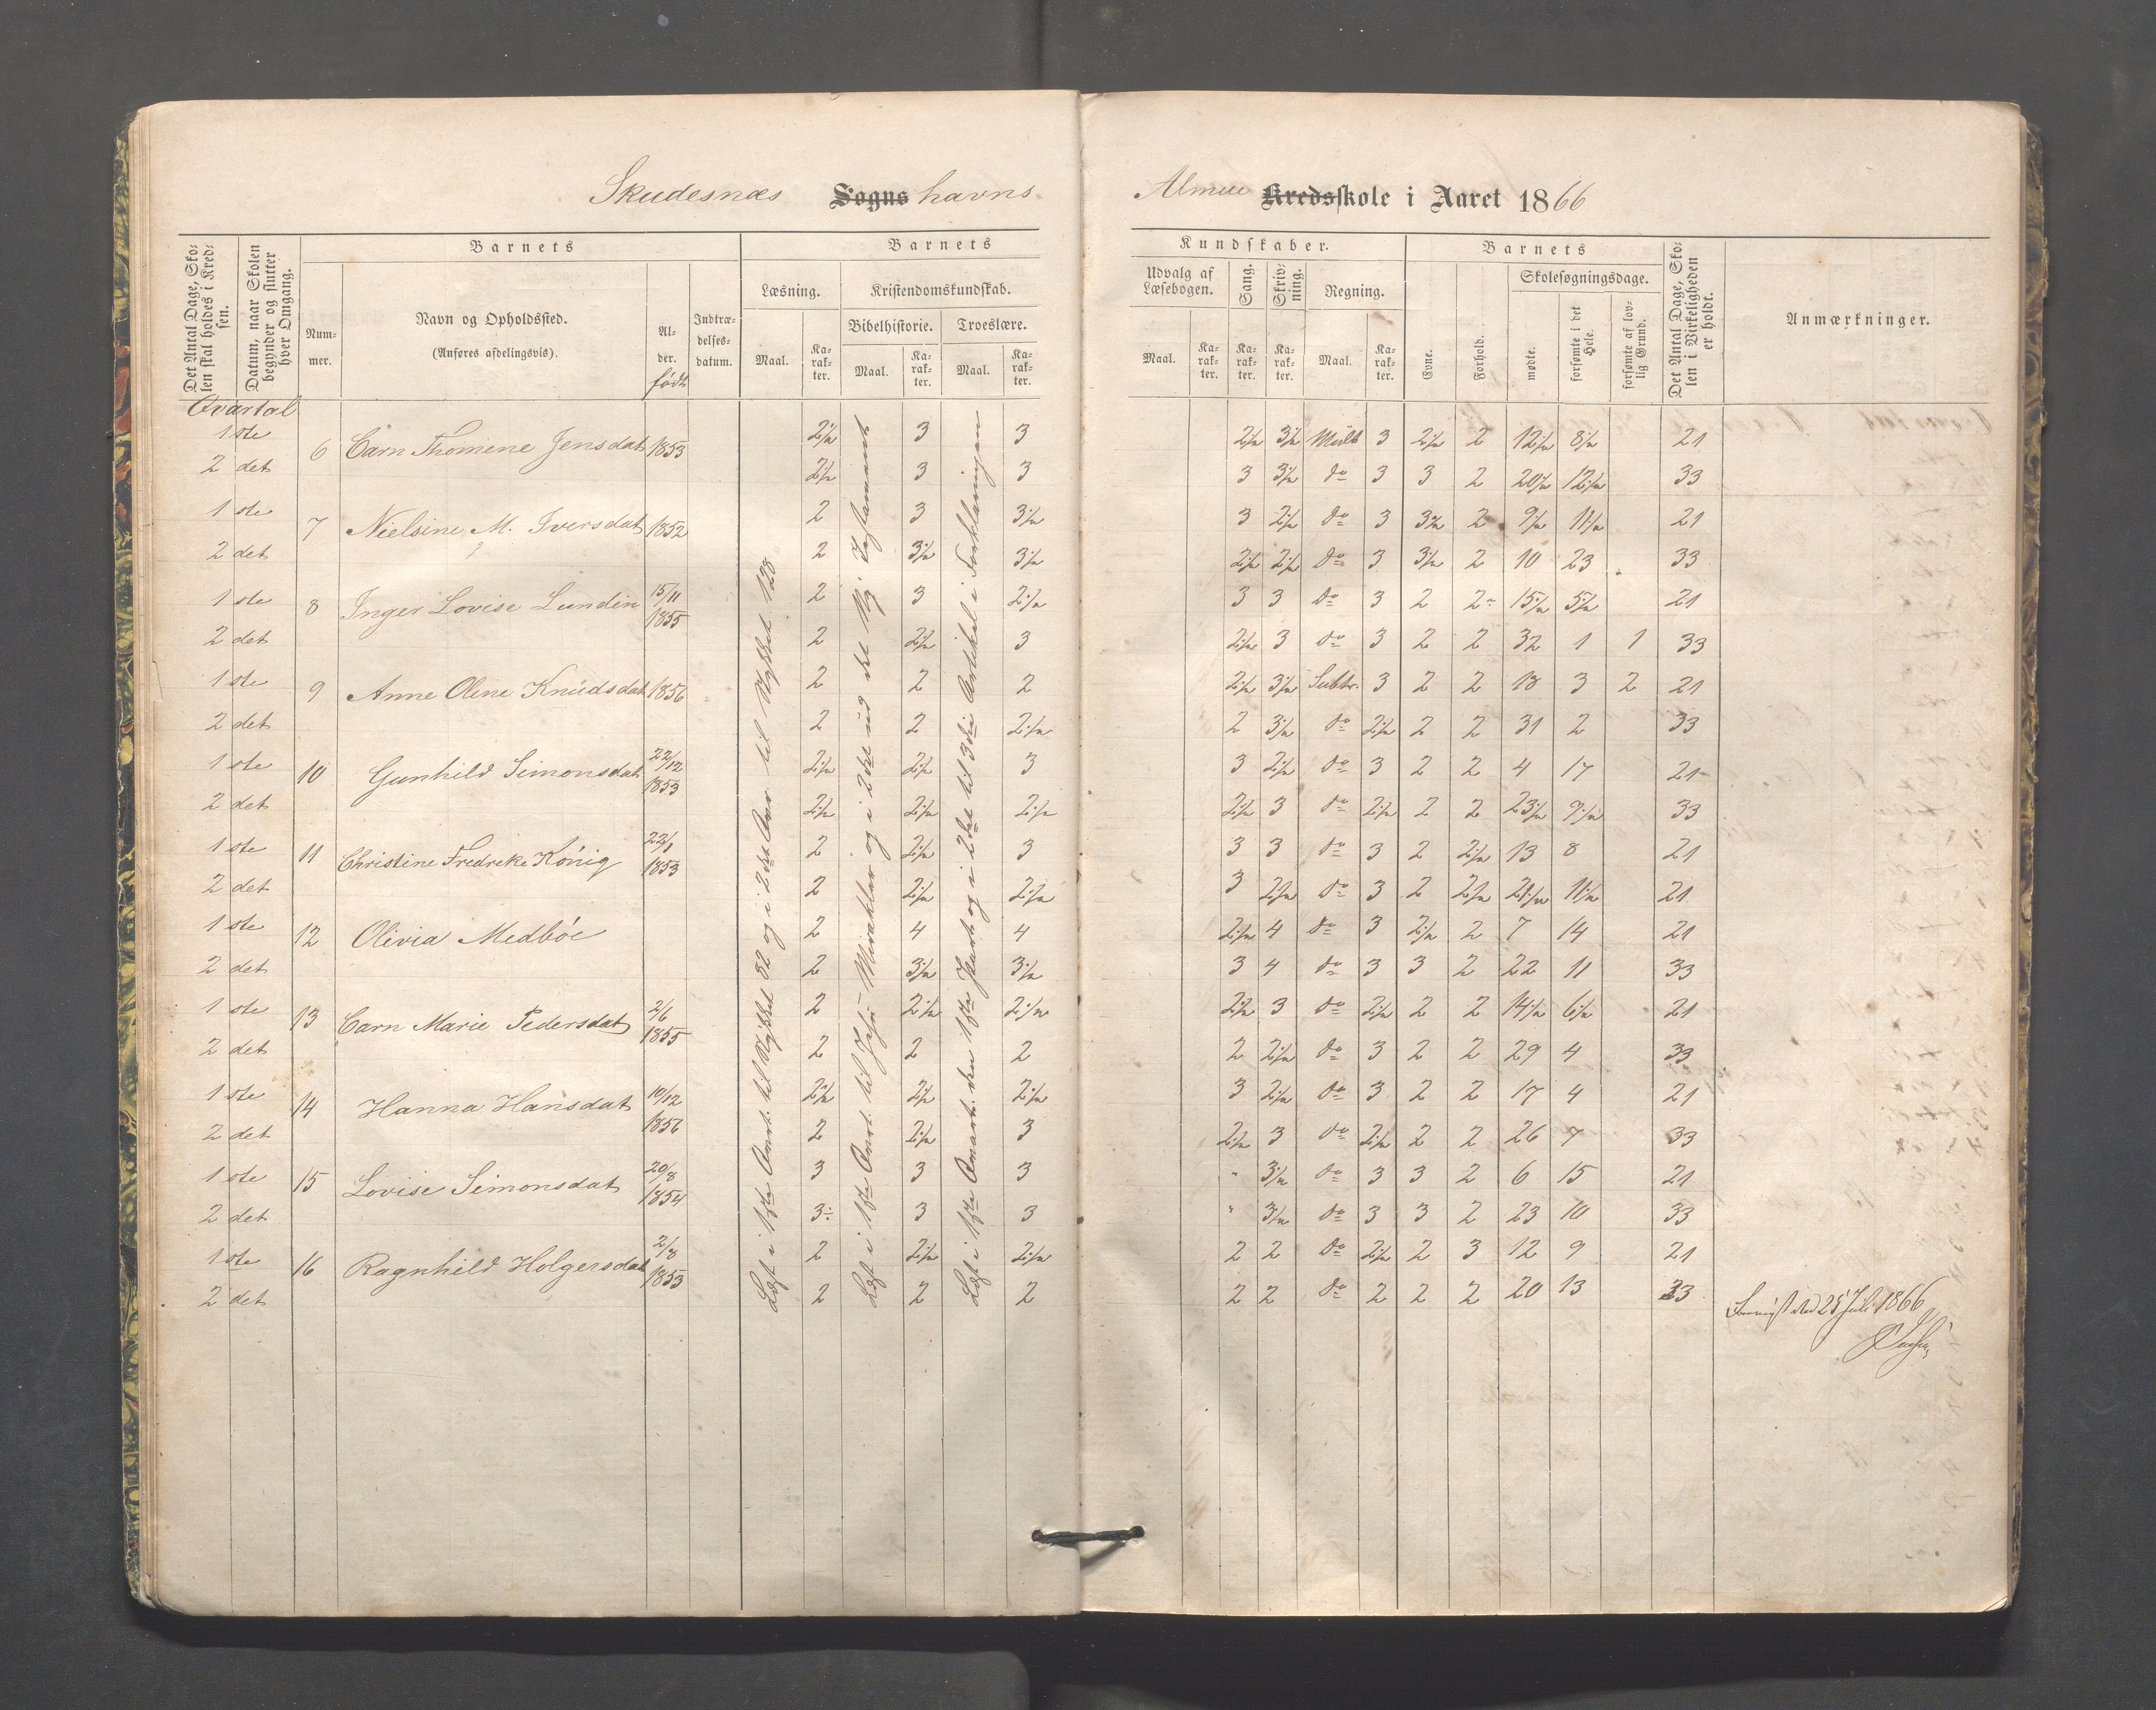 Skudesnæs Sogns havns
Almue Kredsskole i Aaret 1866
Det Antal Dage, Skolen skal holdes i Kredsen.
Datum, naar Skolen begynder og slutter hver Omgang.
Barnets
Nummer.
Navn og Opholdssted.
(Anføres afdelingsvis).
Alder.
født
Indtrædelsesdatum.
Barnets
Læsning.
Maal.
Karakter.
Kristendomskundskab.
Bibelhistorie.
Maal.
Karakter.
Troeslære.
Maal.
Karakter.
Kundskaber.
Udvalg af Læsebogen.
Maal.
Karakter.
Sang.
Karakter.
Skrivning.
Karakter.
Regning.
Maal.
Karakter.
Barnets
Evne.
Forhold.
Skolesøgningsdage.
mødte.
forsømte i det Hele.
forsømte af lovlig Grund.
Det Antal Dage, Skolen i Virkeligheden er holdt.
Anmærkninger.
Qvartal
1ste 6 Carn Thomine Jensdat 1853 2½ 3 3 2½ 3½ Mult 3 2½ 2 12½ 8½ 21
2det 2½ 3 3 3 3½ do 3 3 2 20½ 12½ 33
1ste 7 Nielsine M. Iversdat 1852 2 3 3½ 3 2½ do 3 3½ 2 9½ 11½ 21
2det 2 3½ 3½ 2½ 2½ do 3 3½ 2 10 23 33
1ste 8 Inger Lovise Lundin 15/11 1855 2 3 2½ 3 3 do 3 2 2 15½ 5½ 21
2det 2 2½ 3 2½ 3 do 3 2 2 32 1 1 33
1ste 9 Anne Oline Knudsdat 1856 2 2 2 2½ 3½ Subtr. 3 2 2 18 3 2 21
2det 2 2 2½ 2 3½ do 2½ 2 2 31 2 33
1ste 10 Gunhild Simonsdat 22/12 1853 2½ 2½ 3 3 2½ do 3 2 2 4 17 21
2det 2½ 2½ 2½ 2½ 3 do 2½ 2 2 23½ 9½ 33
1ste 11 Christine Fredreke König 22/1 1853 2 2½ 3 3 3 do 3 2 2½ 13 8 21
2det 2 2½ 2½ 3 2½ do 3 2 2½ 21½ 11½ 21
1ste 12 Olivia Medböe 2 4 4 2½ 4 do 3 2½ 2 7 14 21
2det 2 3½ 3½ 3 4 do 3 3 2 22 11 33
1ste 13 Carn Marie Pedersdat 2/6 1855 2 2½ 2½ 2½ 3 do 2½ 2 2 14½ 6½ 21
2det 2 2 2 2 2½ do 3 2 2 29 4 33
1ste 14 Hanna Hansdat 10/12 1856 2½ 2½ 2½ 3 2½ do 3 2 2 17 4 21
2det 2 2½ 3 2½ 3 do 2½ 2 2 26 7 33
1ste 15 Lovise Simonsdat 20/8 1854 3 3 3 " 3½ do 3 3 2 6 15 21
2det 3 3 3 " 3½ do 3 3 2 23 10 33
1ste 16 Ragnhild Holgersdat 2/8 1853 2 2½ 2½ 2 2 do 2½ 2 3 12 9 21
2det 2 2 2 2 2 do 2 2 2 20 13 33
Læst i 1ste Qvart. til Stykket 82 og i 2det Qvar. til Stykket 123
Læst i 1ste Qvart. til Jesu Mirakler og i 2det ud det Ny Testamente
Læst i 1ste Qvart. den 1ste Part og i 2det til 3die Artikel i Forklaringen
den 25 Juli 1866